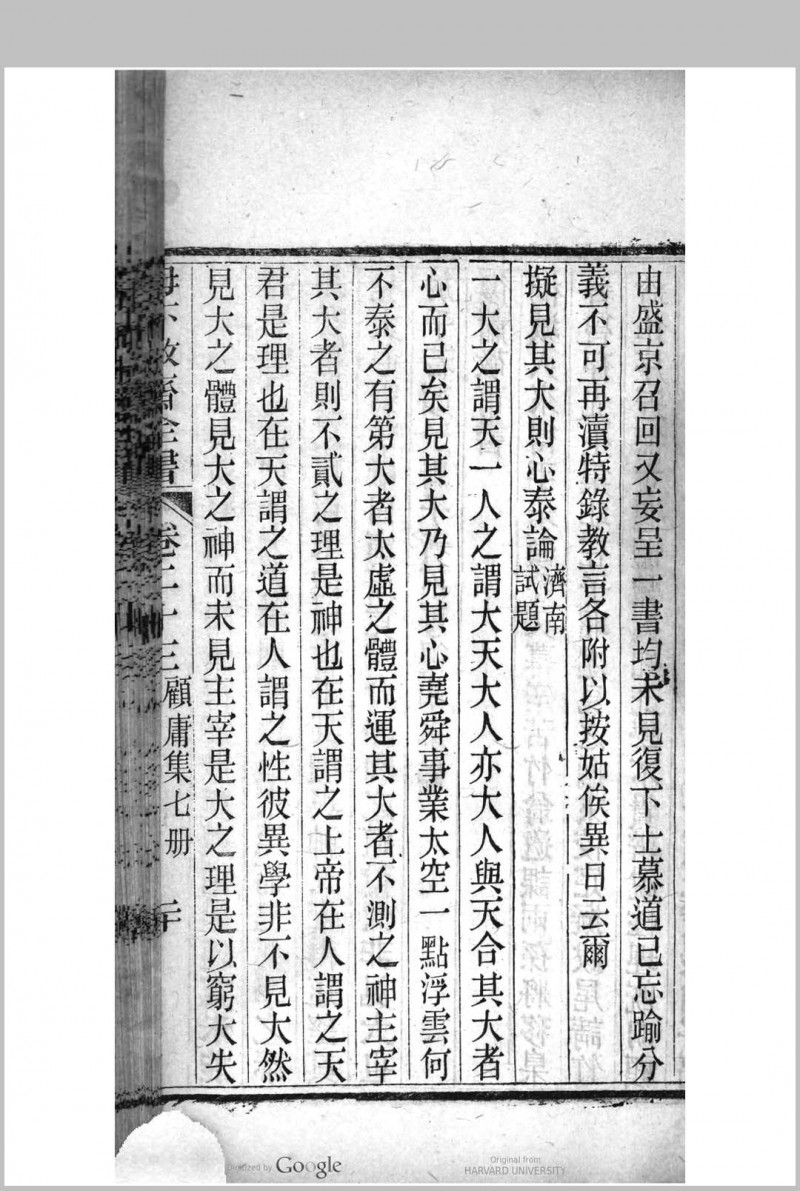 由盛京召回又妄呈一書均未見復下士慕道已忘踰分
義不可再瀆特錄教言各附以按姑俟異日云爾
擬見其大則心泰論濟南試題
一大之謂天一人之謂大天大人亦大人與天合其大者
心而已矣見其大乃見其心堯舜事業太空一點浮雲何
不泰之有第大者太虛之體而運其大者不測之神主宰
其大者則不貳之理是神也在天謂之上帝在人謂之天
君是理也在天謂之道在人謂之性彼異學非不見大然
見大之體見大之神而未見主宰是大之理是以窮大失
齋全書 卷二十三 顧庸集七册 二十
Digitized by Google
Original from
HARVARD UNIVERSITY